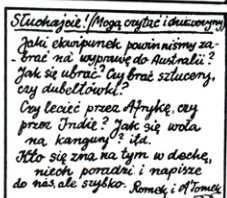 Słuchajcie! (Mogą czytać i dziewczyny)
Jaki ekwipunek powinniśmy za-
brać na wyprawę do Australii?
Jak się ubrać? Czy brać sztucery,
czy dubeltówki?
Czy lecieć przez Afrykę, czy
przez Indie? Jak się woła
na kangury? itd.
Kto się zna na tym w dechę,
niech poradzi i napisze
do nas, ale szybko. Romek i A'Tomek